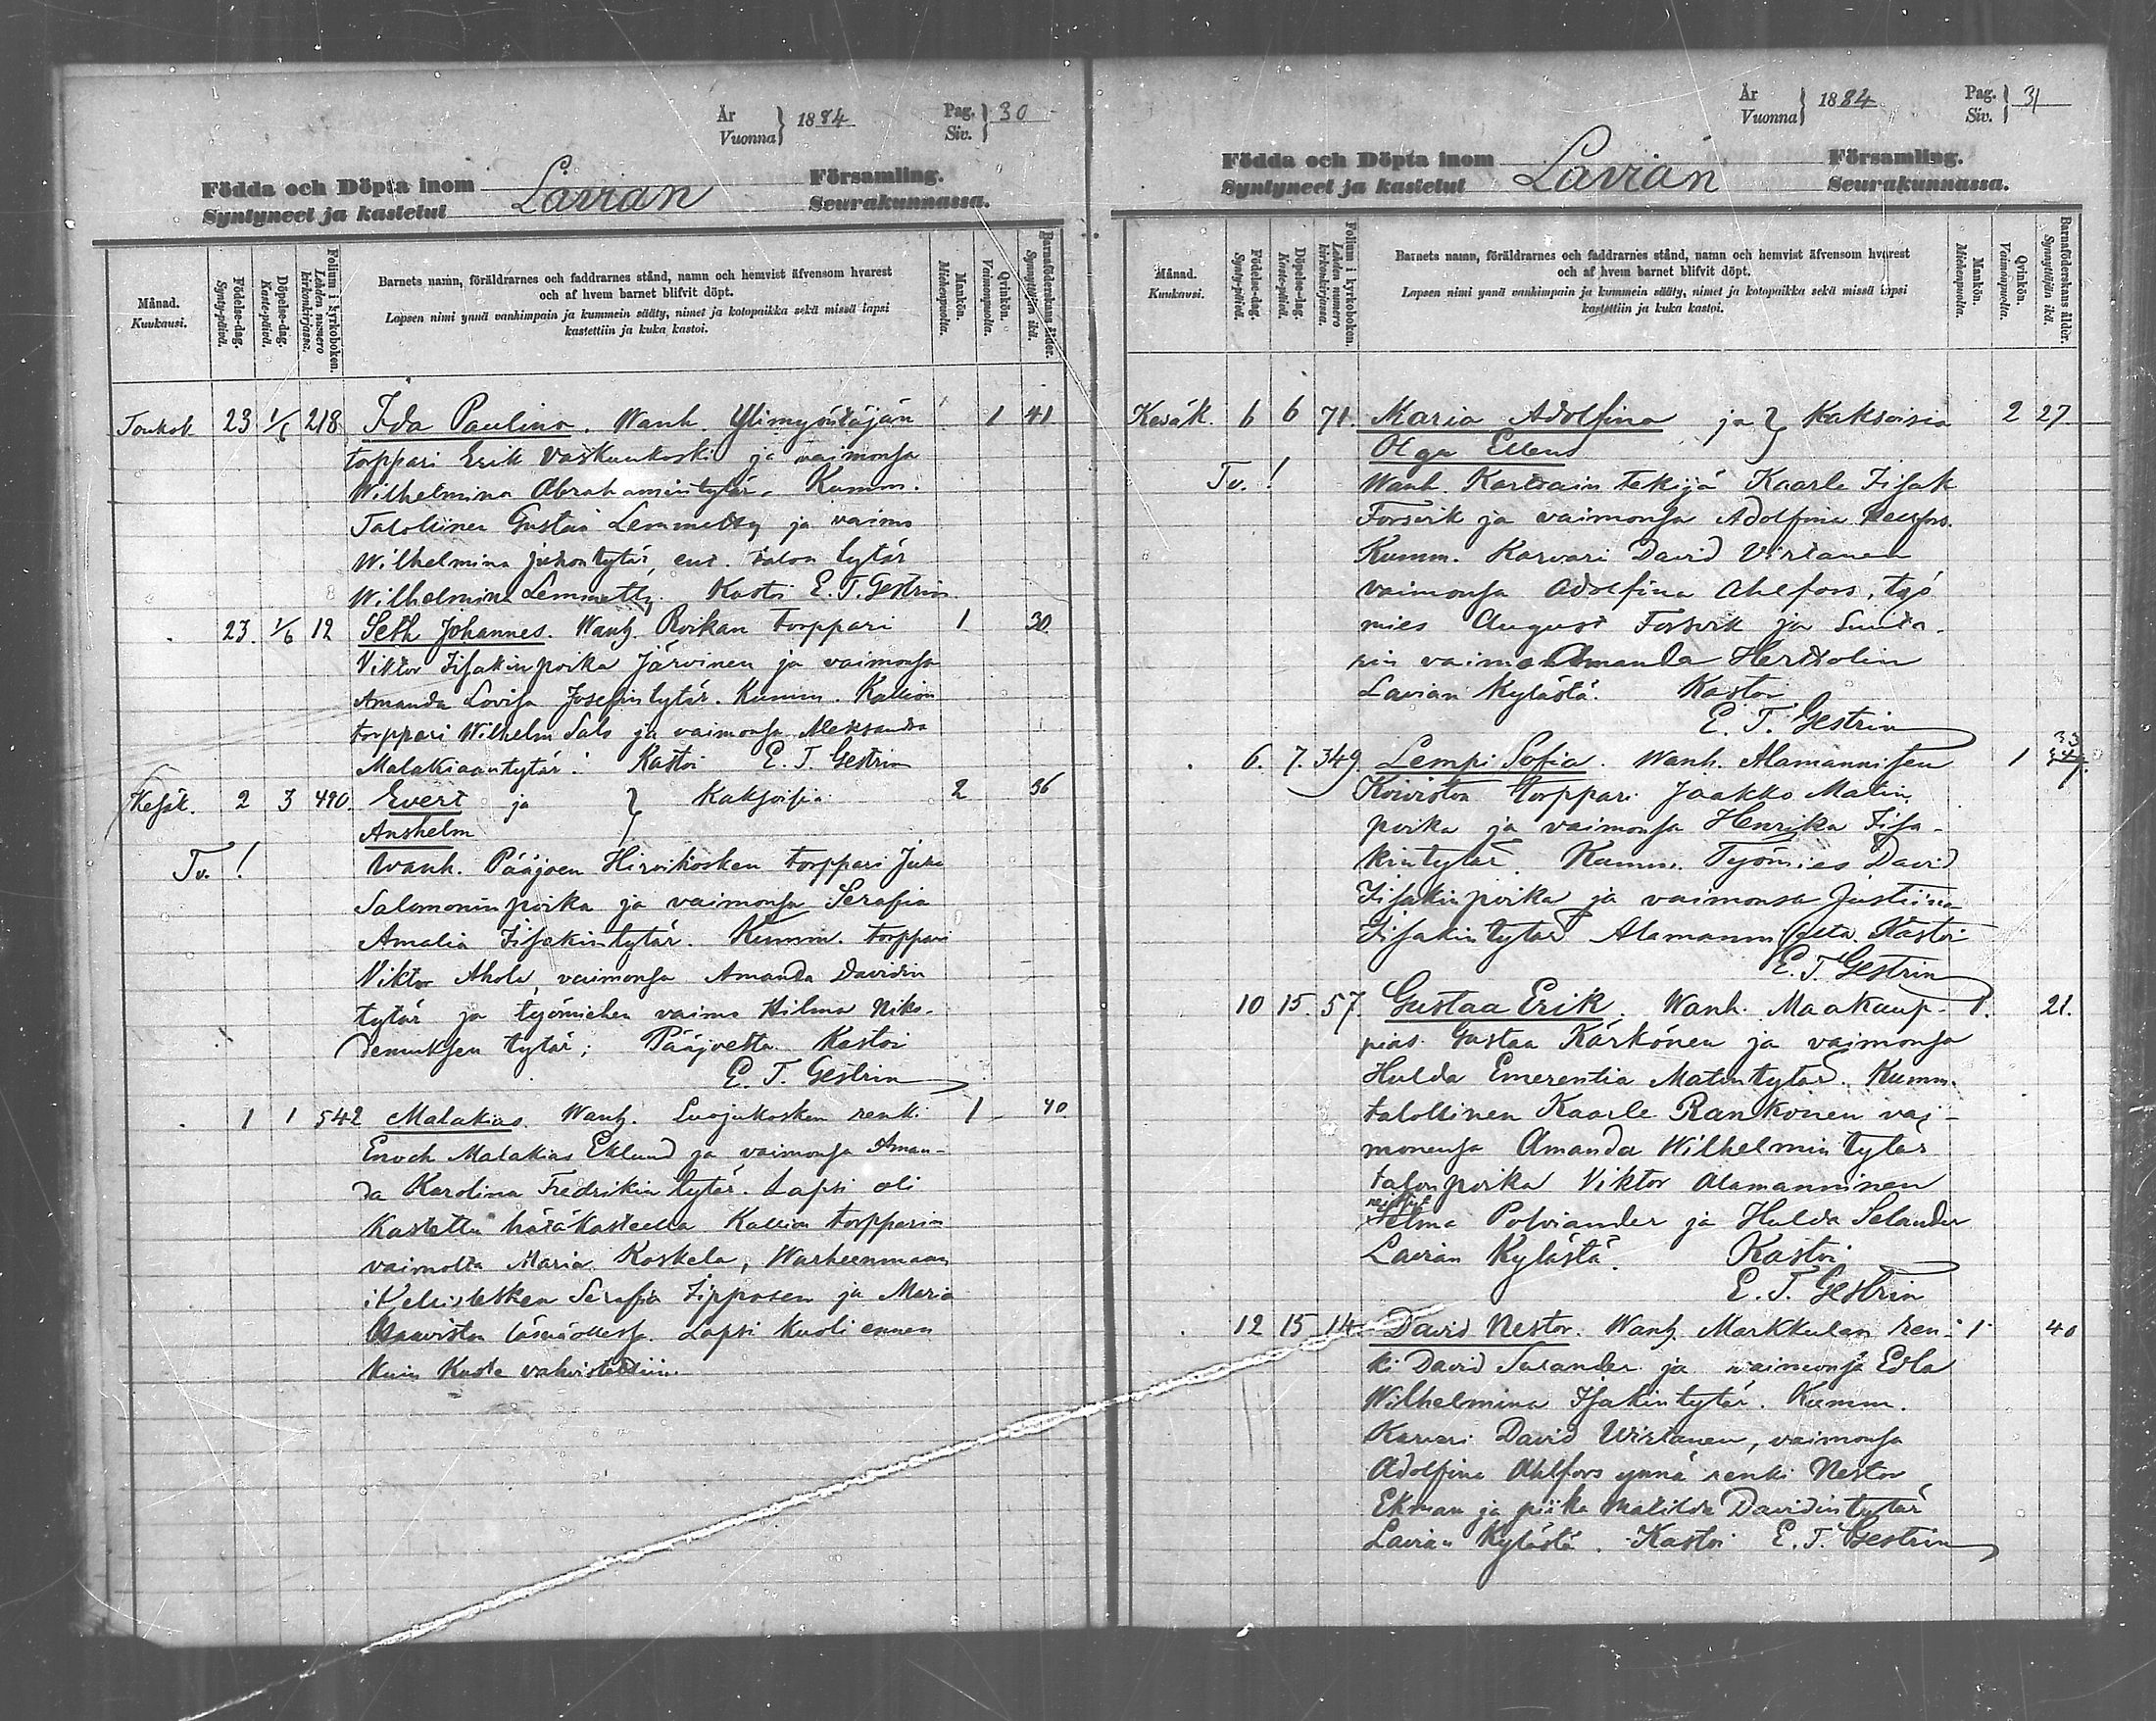 År
Vuonna } 1884 Pag.
Siv. } 30
Födda och Döpta inom
Syntyneet ja kastetut Lavian Församling.
Seurakunnassa.
Månad.
Kuukausi.
Födelse-dag.
Synty-päivä.
Döpelse-dag.
Kaste-päivä.
Folium i kyrkoboken.
Lehden numero kirkonkirjassa.
Barnets namn, föräldrarnes och faddrarnes stånd, namn och hemvist äfvensom hvarest
och af hvem barnet blifvit döpt.
Lapsen nimi ynnä vanhimpain ja kummein sääty, nimet ja kotopaikka sekä missä lapsi
kastettiin ja kuka kastoi.
Mankön.
Miehenpuolta.
Qvinkön.
Vaimonpuolta.
Barnaföderskans ålder.
Synnyttäjän ikä.
Toukok. 23 1/6 218. Ida Paulina. Wanh. Ylimyöntäjän 1 41
torppari Erik Vaskuukoski ja vaimonsa
Wilhelmina Abrahamintytär. Kumm.
Talollinen Gustaa Lemmetty ja vaimo
Wilhelmina Juhontytär, ent. talon tytär
Wilhelmina Lemmetty. Kastoi E. T. Gestrin
23. 1/6 12 Seth Johannes. Wanh. Roikan torppari 1 30
Viktor Iisakinpoika Järvinen ja vaimonsa
Amanda Lovisa Josefintytär. Kumm. Kallion
torppari Wilhelm Salo ja vaimonsa Aleksandra
Malakiaantytär. Kastoi E. T. Gestrin
Kesäk. 2 3 490. Evert ja } Kaksoisia 2 36
Anshelm
Tv. ! Wanh. Pääjoen Hirvikosken torppari Juha
Salomoninpoika ja vaimonsa Serafia
Amalia Iisakintytär. Kumm. torppari
Viktor Ahola, vaimonsa Amanda Davidin
tytär ja työmiehen vaimo Hilma Niko-
demuksen tytär; Pääjoelta Kastoi
E. T. Gestrin
1 1 542 Malakias. Wanh. Suojukosken renki 1 40.
Enoch Malakias Eklund ja vaimonsa Aman-
da Karolina Fredrikintytär. Lapsi oli
Kastettu hätäkasteella Kallion torpparin
vaimolta Maria Koskela, Warheenmaan
itsellisesken Serafia Jipposen ja Maria
läsnäollessa. Lapsi kuoli ennen
kuin Kaste vahvistettiin.
År
Vuonna } 1884 Pag.
Siv. } 31
Födda och Döpta inom
Syntyneet ja kastetut Lavian Församling.
Seurakunnassa.
Månad.
Kuukausi.
Födelse-dag.
Synty-päivä.
Döpelse-dag.
Kaste-päivä.
Folium i kyrkoboken.
Lehden numero kirkonkirjassa.
Barnets namn, föräldrarnes och faddrarnes stånd, namn och hemvist äfvensom hvarest
och af hvem barnet blifvit döpt.
Lapsen nimi ynnä vanhimpain ja kummein sääty, nimet ja kotopaikka sekä missä lapsi
kastettiin ja kuka kastoi.
Mankön.
Miehenpuolta.
Qvinkön.
Vaimonpuolta.
Barnaföderskans ålder.
Synnyttäjän ikä.
Kesäk. 6 6 71. Maria Adolfina ja } Kaksoisia 2 27.
Olga Ellena
Tv. ! Wanh. Kartvain tekijä Kaarle Iisak
Forsvik ja vaimonsa Adolfina
Kumm. Karvari David Virtanen
vaimonsa Adolfina Ahlfors, työ
mies August Forsvik ja Sunta-
rin vaimo Amanda Hertsolin
Lavian Kylästä. Kastoi
E. T. Gestrin
6. 7. 349. Lempi Sofia. Wanh. Alamannisen 1 33
Koiviston torppari Jaakko Matin
poika ja vaimonsa Henrika Iisa-
kintytär. Kumm. Työmies David
Iisakinpoika ja vaimonsa Justiina
Iisakintytär Alamannisalta. Kastoi
E. T. Gestrin
10 15. 57. Gustaa Erik. Wanh. Maakaup- 1. 21.
pias Gustaa Kärkönen ja vaimonsa
Hulda Emerentia Matintytär. Kumm.
talollinen Kaarle Rankonen vai-
monensa Amanda Wilhelmintytär
talonpoika Viktor Alamanninen
neitsyt
Selma Polviander ja Hulda Selander
Lavian Kylästä. Kastoi
E. T. Gestrin
12 15 14. David Nestor. Wanh. Markkulan ren- 1 40
ki David Salander ja vaimonsa Edla
Wilhelmina Isakintytär. Kumm.
Karvari David Wirtanen, vaimonsa
Adolfina Ahlfors ynnä renki Nestor
Ekman ja piika Matilda Davidintytär
Lavian Kylästä. Kastoi E. T. Gestrin